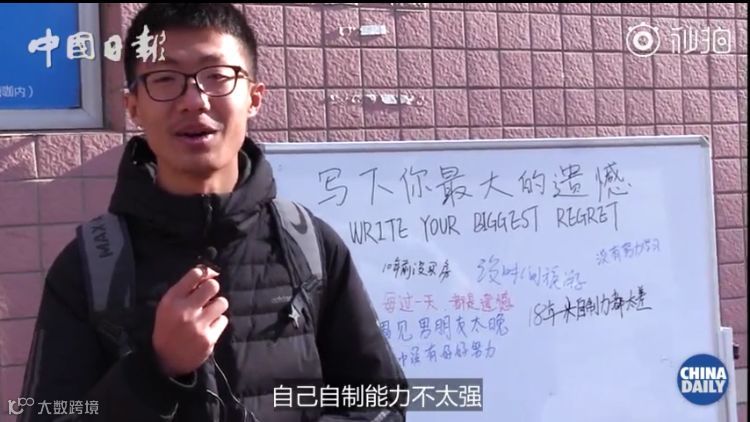 中國日報
秒拍
咖内）
写下你最大的遗憾
WRITE YOUR BIGGEST REGRET
没有努力学习
10年前没买房
每过一天,都是遗憾
18年来自制力都太差
遇见男朋友太晚
中没有好好努力
MAX
自己自制能力不太强
CHINA
DAILY
大数跨境